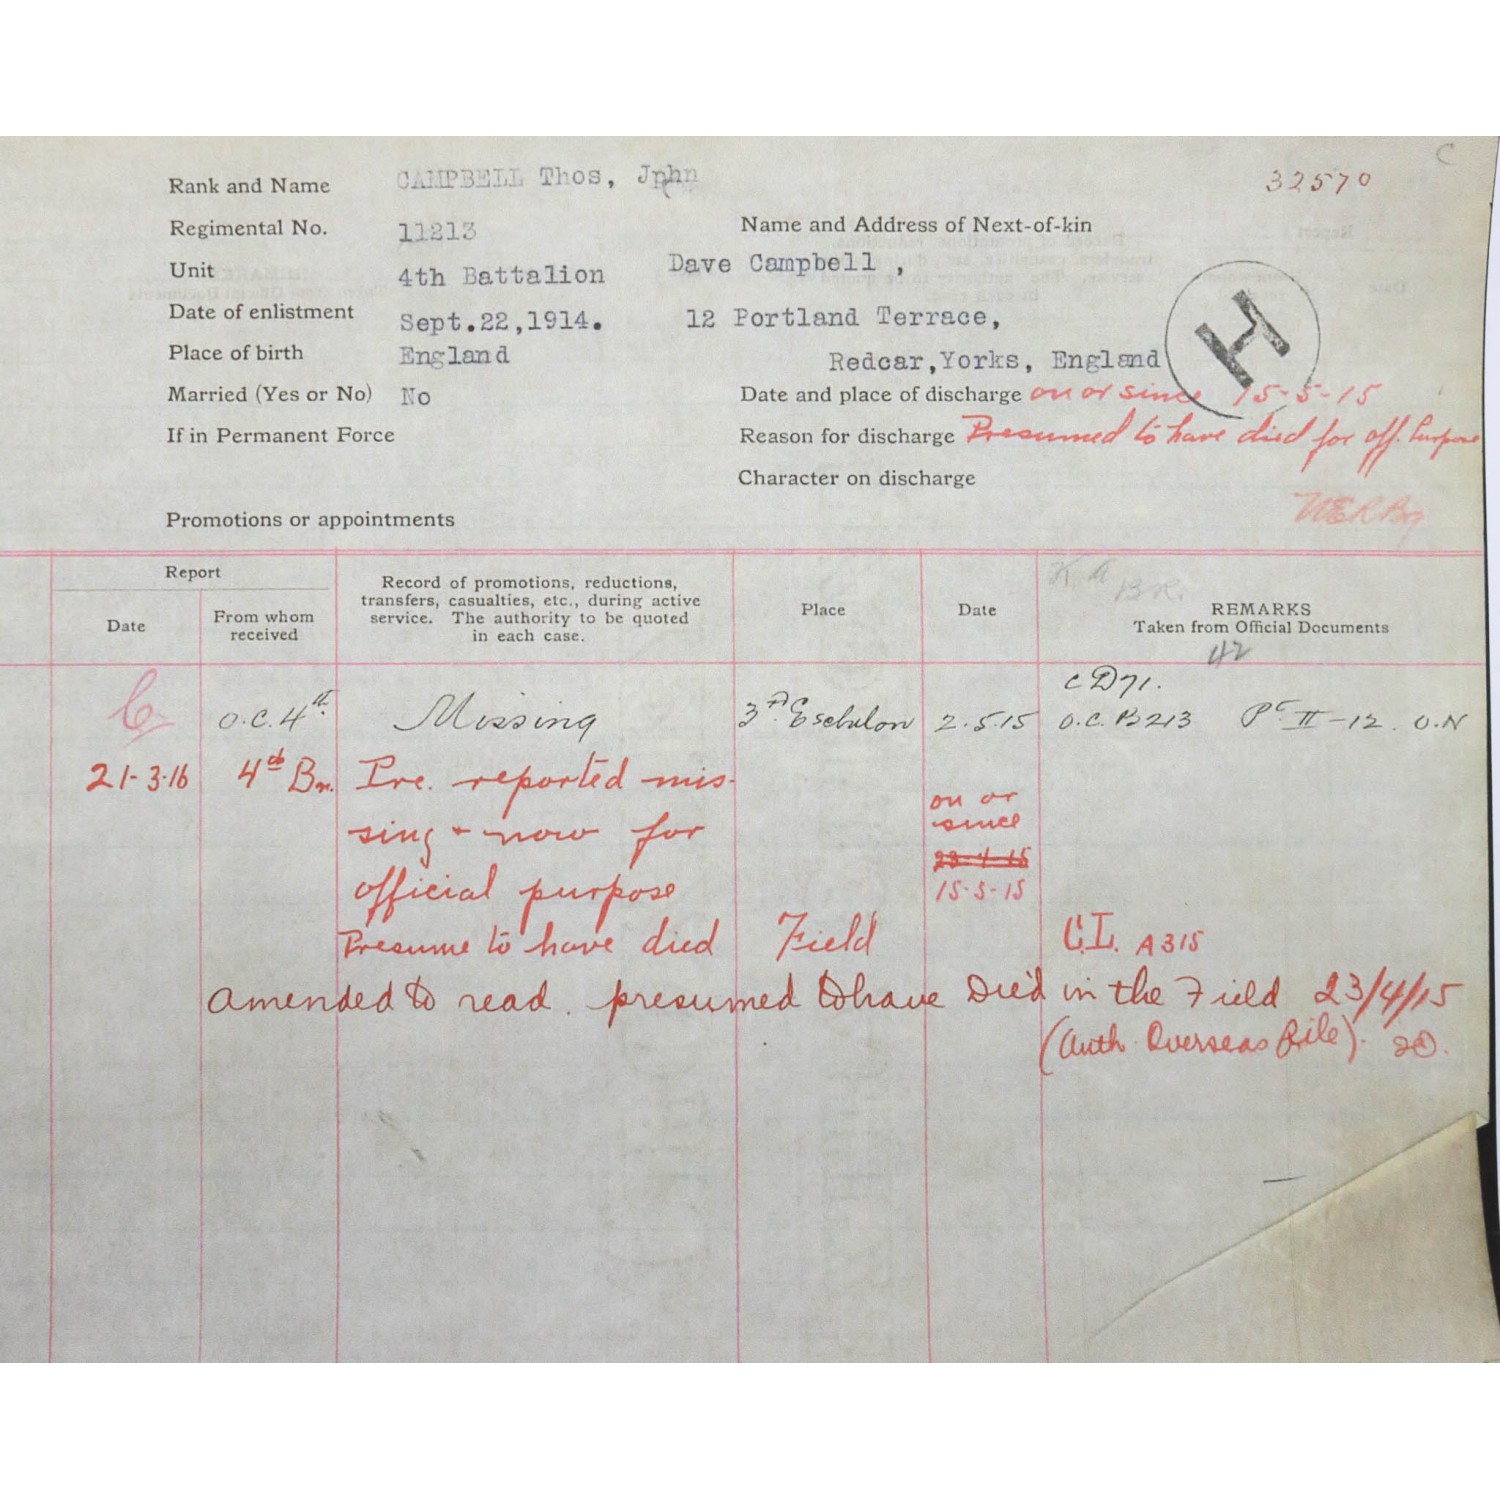 C
32570
Rank and Name CAMPBELL Thos, John
Regimental No. 11213
Unit 4th Battalion
Date of enlistment Sept.22,1914.
Place of birth England
Married (Yes or No) No
If in Permanent Force
Name and Address of Next-of-kin
Dave Campbell ,
12 Portland Terrace,
Redcar,Yorks, England
H
Date and place of discharge on or since 15-5-15
Reason for discharge Presumed to have died for off. Purpose
Character on discharge
Promotions or appointments
Report
Date
From whom
received
Record of promotions, reductions,
transfers, casualties, etc., during active
service. The authority to be quoted
in each case.
Place
Date
K A
REMARKS
Taken from Official Documents
42
C D71.
O.C. 4th. Missing 3rd Echelon 2.5.15 O.C. B213 Pt II-12. O.N
21-3-16 4th Bn. Pve. reported mis-
sing + now for
official purpose
Presume to have died
on or
since
23-4-15
15-5-15
Field
C.L. A315
amended to read. presumed to have Died in the Field 23/4/15
(Auth. Overseas File).